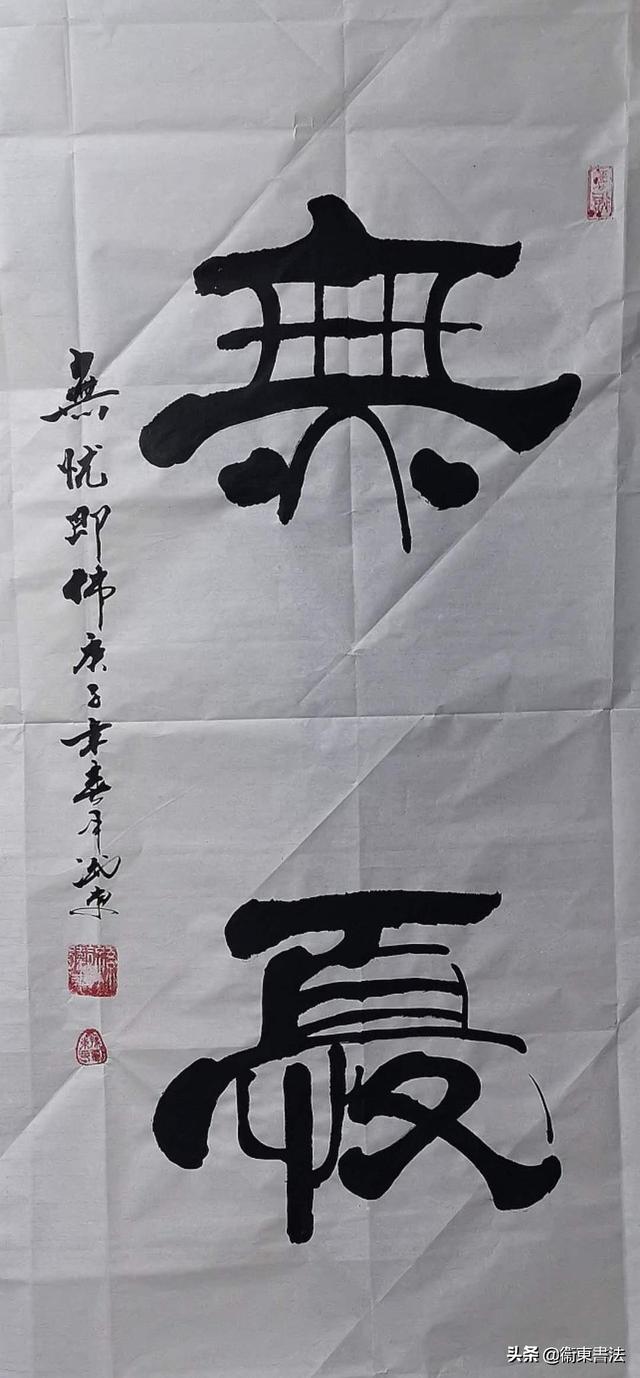 無憂
無忧即佛庚子年春月東
头条 @衞東書法